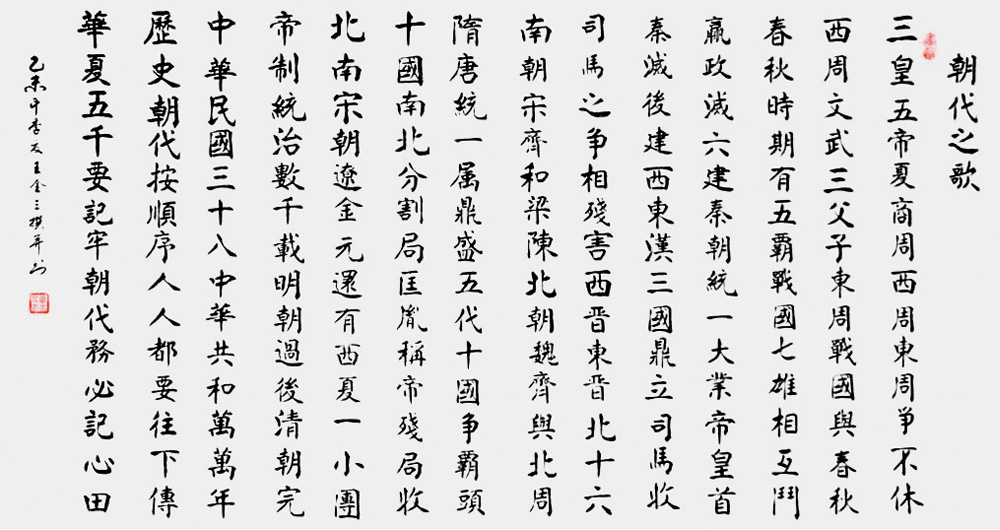 朝代之歌
三皇五帝夏商周西周東周爭不休
西周文武三父子東周戰國與春秋
春秋時期有五霸戰國七雄相互鬥
贏政滅六建秦朝統一大業帝皇首
秦滅後建西東漢三國鼎立司馬收
司馬之争相殘害西晋東晋北十六
南朝宋齊和梁陳北朝魏齊與北周
隋唐統一属鼎盛五代十國争霸頭
十國南北分割局匡胤稱帝殘局收
北南宋朝遼金元還有西夏一小團
帝制統治數千載明朝過後清朝完
中華民國三十八中華共和萬萬年
歷史朝代按順序人人都要往下傳
華夏五千要記牢朝代務必記心田
乙未年季友王金三撰并书